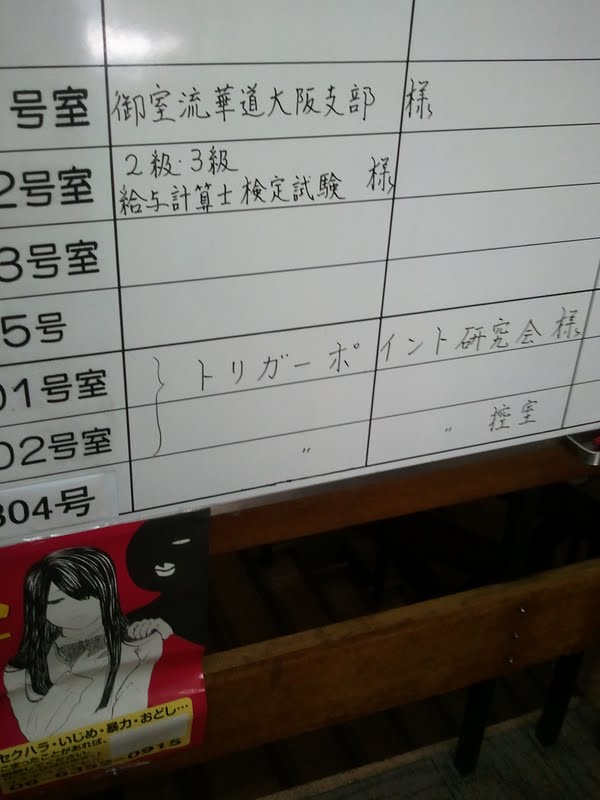 号室 御室流華道大阪支部 様
2号室 2級・3級
給与計算士検定試験 様
3号室
5号
01号室 トリガーポイント研究会 様
02号室
〃 〃 控室
304号
セクハラ・いじめ・暴力・おどし…
こまったことがあれば、
0915